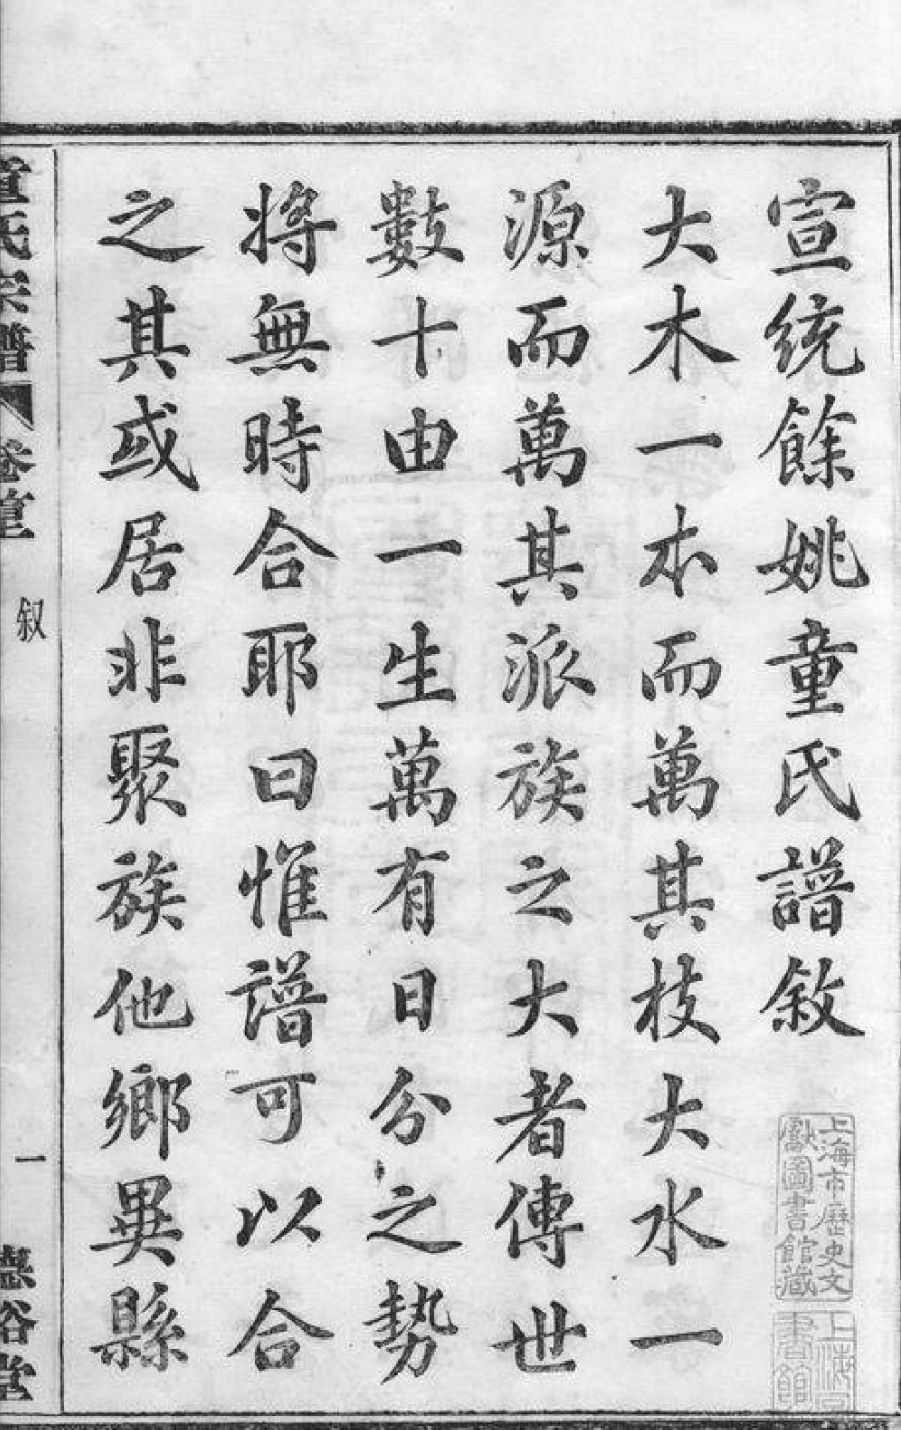 宣統餘姚童氏譜敘
大木一本而萬其枝大水一
源而萬其派族之大者傳世
數十由一生萬有日分之勢
將無時合耶曰惟譜可以合
之其或居非聚族他鄉異縣
童氏宗譜 卷首 叙 一
上海市歷史文
獻圖書館藏